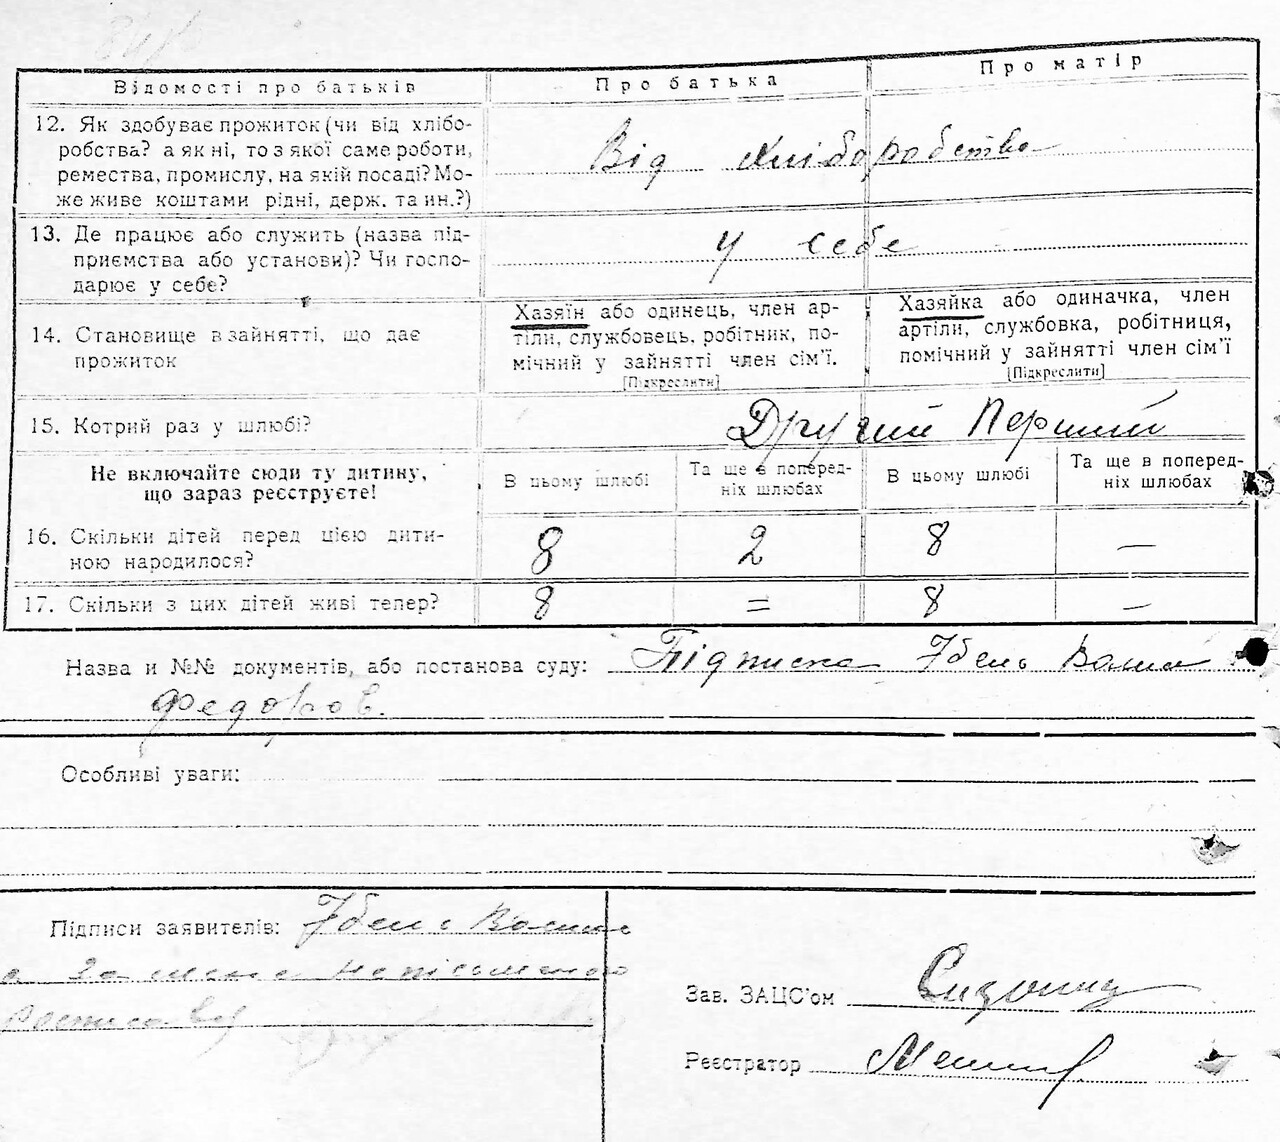 Відомості про батьків
Про батька
Про матір
12. Як здобуває прожиток (чи від хлібо-
робства? а як ні, то з якої саме роботи,
ремества, промислу, на якій посаді? Мо-
же живе коштами рідні, держ. та ин.?)
Від хліборобства
13. Де працює або служить (назва під-
приємства або установи)? Чи госпо-
дарює у себе?
У себе
14. Становище в зайнятті, що дає
прожиток
Хазяїн або одинець, член ар-
тіли, службовець, робітник, по-
мічний у зайнятті член сім'ї.
[Підкреслити]
Хазяйка або одиначка, член
артіли, службовка, робітниця,
помічний у зайнятті член сім'ї
[Підкреслити]
15. Котрий раз у шлюбі?
Другий Перший
Не включайте сюди ту дитину,
що зараз реєструєте!
В цьому шлюбі
Та ще в поперед-
ніх шлюбах
В цьому шлюбі
Та ще в поперед-
ніх шлюбах
16. Скільки дітей перед цією дити-
ною народилося?
8 2 8 —
17. Скільки з цих дітей живі тепер?
8 = 8 —
Назва и №№ документів, або постанова суду: Підписка
Федоров.
Особливі уваги:
Підписи заявителів:
Зав. ЗАЦС'ом
Реєстратор